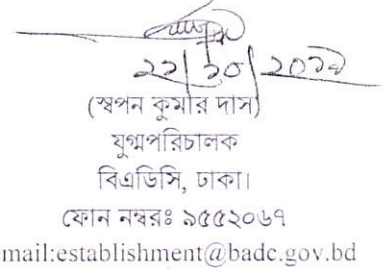 ২২/১০/২০১৯
(স্বপন কুমার দাস)
যুগ্মপরিচালক
বিএডিসি, ঢাকা।
ফোন নম্বরঃ ৯৫৫২০৬৭
mail:establishment@badc.gov.bd